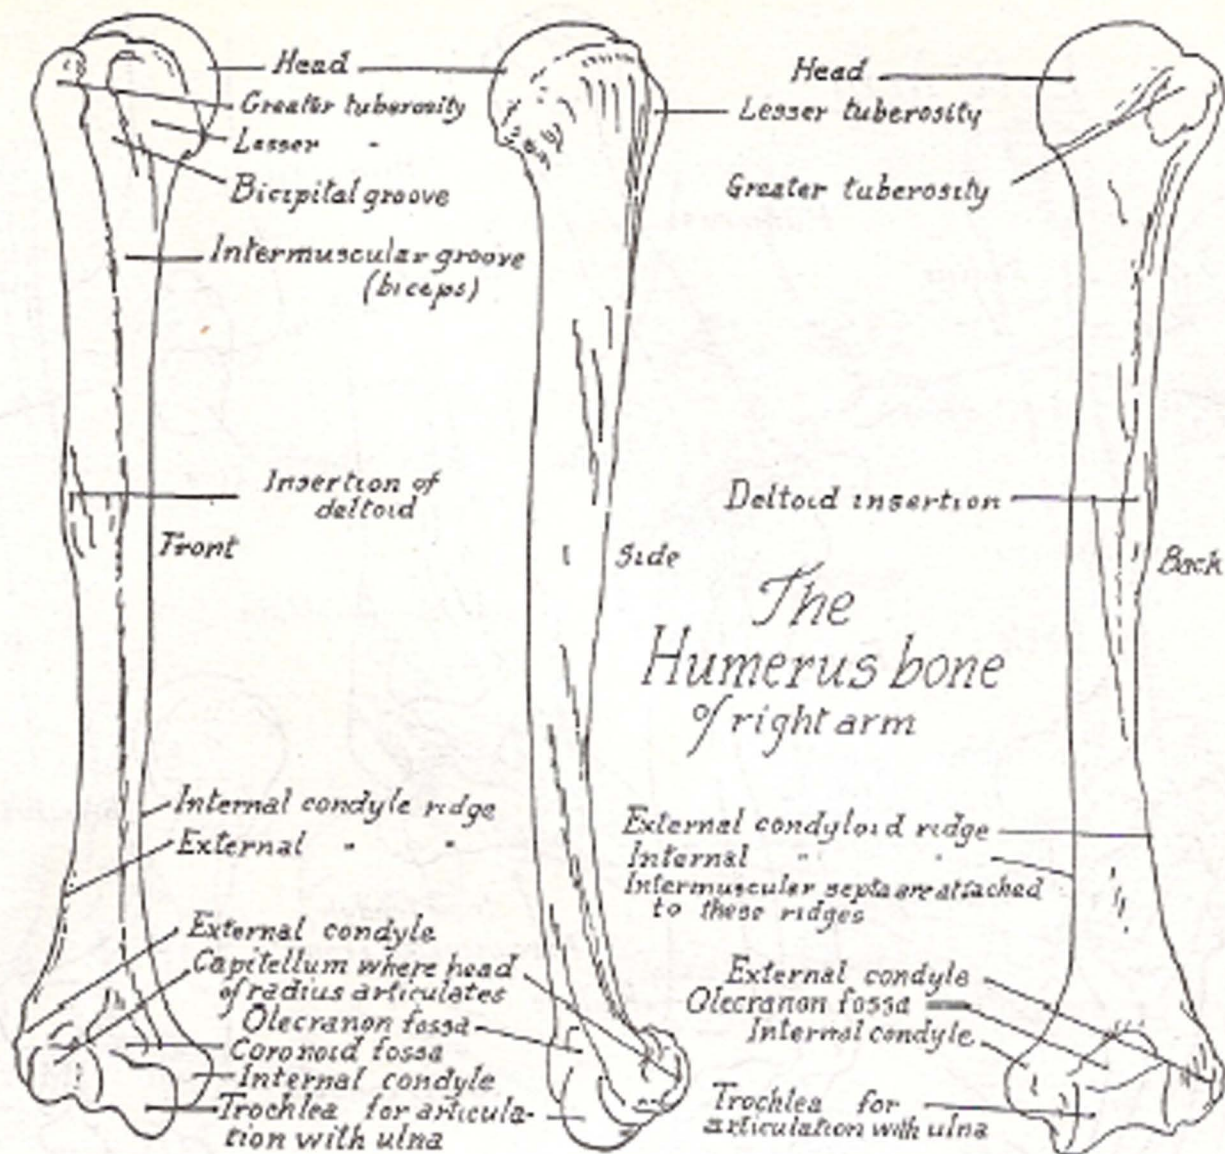 Head
Greater tuberosity
Lesser "
Bicipital groove
Intermuscular groove
(biceps)
Insertion of
deltoid
Front
Internal condyle ridge
External " "
External condyle
Capitellum where head
of radius articulates
Olecranon fossa
Coronoid fossa
Internal condyle
Trochlea for articula-
tion with ulna
Side
Head
Lesser tuberosity
Greater tuberosity
Deltoid insertion
Back
The
Humerus bone
of right arm
External condyloid ridge
Internal " "
Intermuscular septa are attached
to these ridges
External condyle
Olecranon fossa
Internal condyle
Trochlea for
articulation with ulna